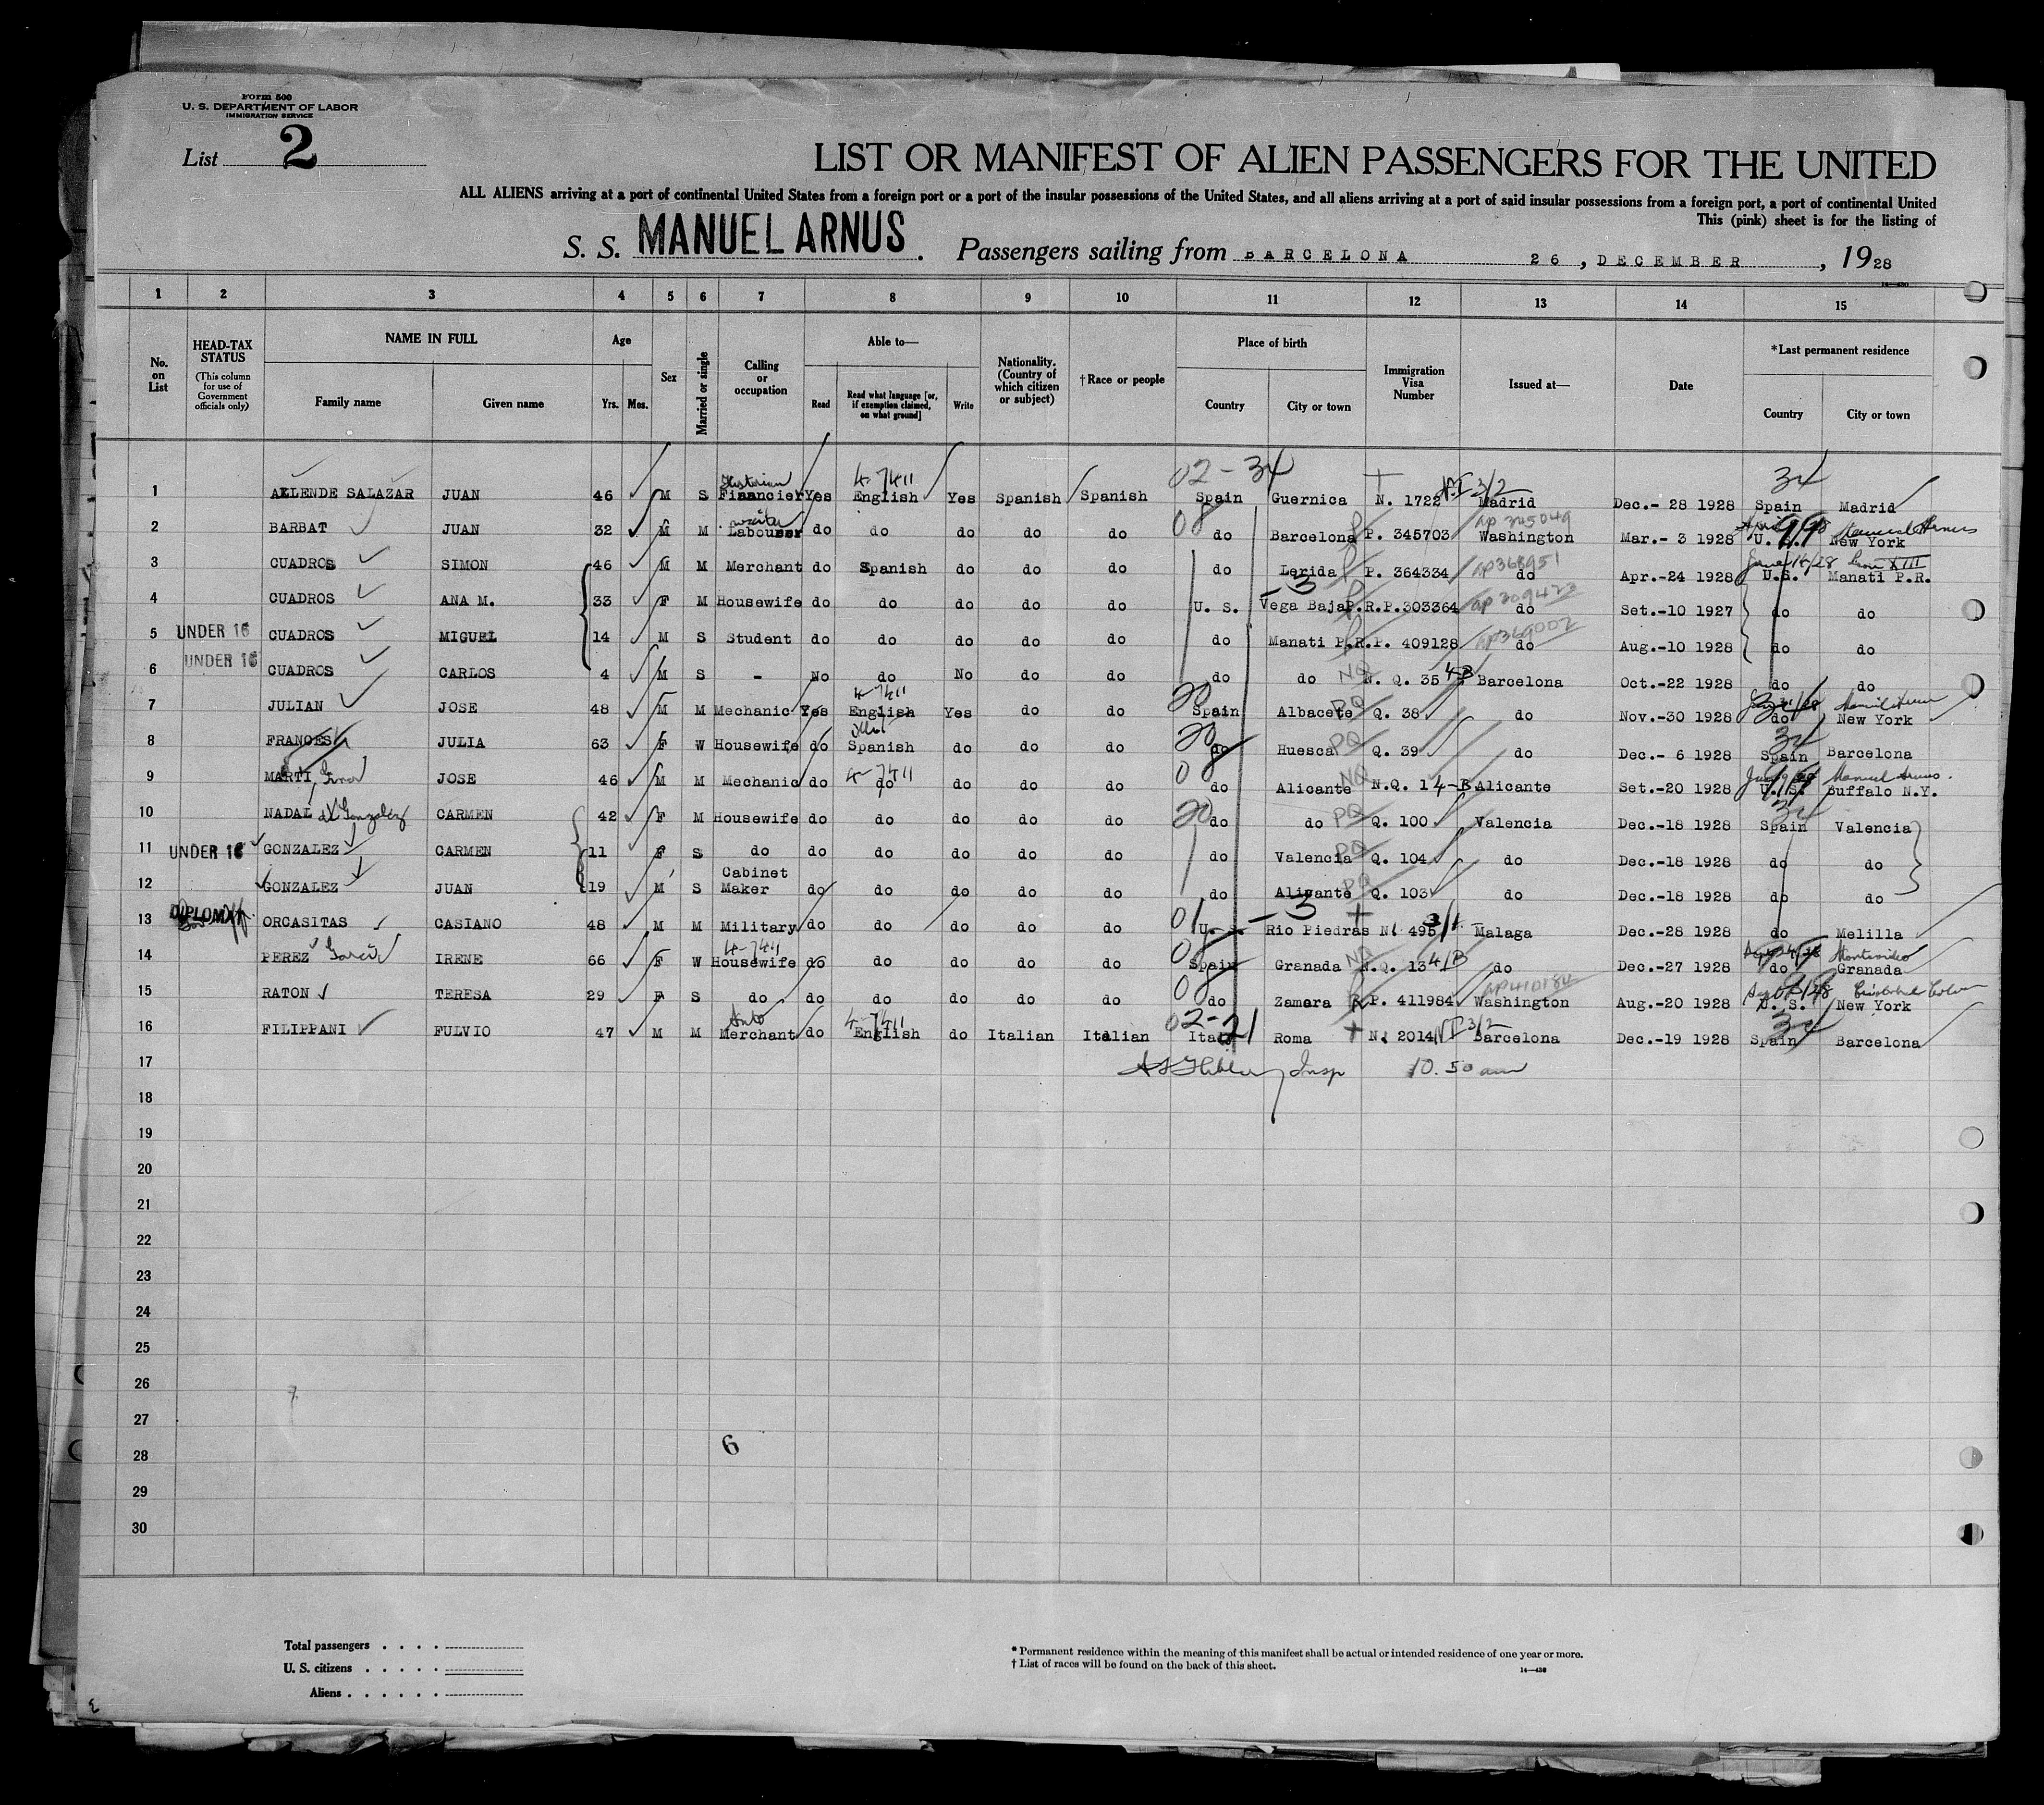 Form 500
U. S. DEPARTMENT OF LABOR
IMMIGRATION SERVICE
List 2
LIST OR MANIFEST OF ALIEN PASSENGERS FOR THE UNITED
ALL ALIENS arriving at a port of continental United States from a foreign port or a port of the insular possessions of the United States, and all aliens arriving at a port of said insular possessions from a foreign port, a port of continental United
This (pink) sheet is for the listing of
S. S. MANUEL ARNUS. Passengers sailing from BARCELONA 26, DECEMBER, 1928
14—430
1 2 3 4 5 6 7 8 9 10 11 12 13 14 15
No. on List
HEAD-TAX STATUS (This column for use of Government officials only)
NAME IN FULL
Family name Given name
Age
Yrs. Mos.
Sex
Married or single
Calling or occupation
Able to—
Read
Read what language [or, if exemption claimed, on what ground]
Write
Nationality. (Country of which citizen or subject)
†Race or people
Place of birth
Country City or town
Immigration Visa Number
Issued at—
Date
*Last permanent residence
Country City or town
02-34 34
Historian 4-7411
1 ALLENDE SALAZAR JUAN 46 M S Financier Yes English Yes Spanish Spanish Spain Guernica N. 1722 3/2 Madrid Dec.- 28 1928 Spain Madrid
2 BARBAT JUAN 32 M M Labouser do do do do do 08 do Barcelona P. 345703 Washington Mar.- 3 1928 U. S. New York
3 CUADROS SIMON 46 M M Merchant do Spanish do do do do Lerida P. 364334 do Apr.-24 1928 U.S. Manati P.R.
4 CUADROS ANA M. 33 F M Housewife do do do do do U. S. Vega Baja P.R.P.303364 do Set.-10 1927 do do
5 UNDER 16 CUADROS MIGUEL 14 M S Student do do do do do do Manati P.R.P. 409128 do Aug.-10 1928 do do
6 UNDER 16 CUADROS CARLOS 4 M S - No do No do do do do N. Q. 35 4B Barcelona Oct.-22 1928 do do
4-7411
7 JULIAN JOSE 48 M M Mechanic Yes English Yes do do 20 Spain Albacete PQ Q. 38 do Nov.-30 1928 do New York
8 FRANCES JULIA 63 F W Housewife do Spanish do do do 20 do Huesca PQ Q. 39 do Dec.- 6 1928 34 Spain Barcelona
9 MARTI JOSE 46 M M Mechanic do 4-7411 do do do do 08 do Alicante NQ N.Q. 1 4-B Alicante Set.-20 1928 U. S. Buffalo N.Y.
10 NADAL de Gonzalez CARMEN 42 F M Housewife do do do do do 20 do do PQ Q. 100 Valencia Dec.-18 1928 34 Spain Valencia
11 UNDER 16 GONZALEZ CARMEN 11 F S do do do do do do do Valencia PQ Q. 104 do Dec.-18 1928 do do
12 GONZALEZ JUAN 19 M S Cabinet Maker do do do do do do Alivante PQ Q. 103 do Dec.-18 1928 do do
13 DIPLOMAT. ORCASITAS CASIANO 48 M M Military do do do do do 01 U. S. -3 Rio Piedras N. 495 3/1 Malaga Dec.-28 1928 do Melilla
4-7411
14 PEREZ Garcia IRENE 66 F W Housewife do do do do do 08 Spain Granada NQ N.Q. 13 4/B do Dec.-27 1928 do Montevideo Granada
15 RATON TERESA 29 F S do do do do do do 08 do Zamara P. 411984 Washington Aug.-20 1928 U. S. New York
Auto 4-7411 02-21
16 FILIPPANI FULVIO 47 M M Merchant do English do Italian Italian Italy Roma N. 2014 3/2 Barcelona Dec.-19 1928 34 Spain Barcelona
17 Insp 10.50 am
18
19
20
21
22
23
24
25
26
27
28 6
29
30
Total passengers . . . .
U. S. citizens . . . . .
Aliens . . . . . .
* Permanent residence within the meaning of this manifest shall be actual or intended residence of one year or more.
† List of races will be found on the back of this sheet.
14—430